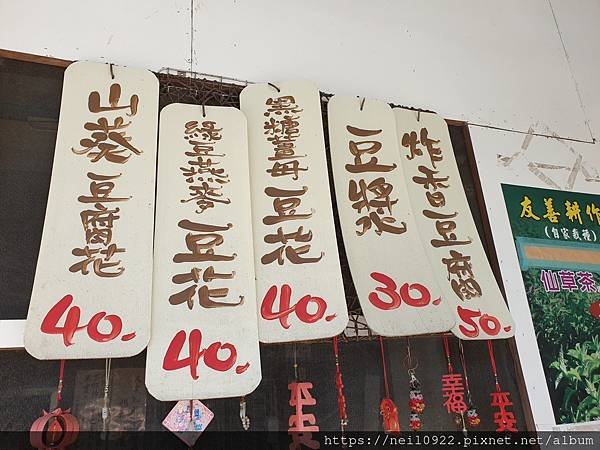 山葵豆腐花
40.
綠豆燕麥豆花
40.
黑糖薑母豆花
40.
豆漿
30.
炸香豆腐
50.
友善耕作
(自家栽種)
仙草茶
平安
幸福
平安
https://neil0922.pixnet.net/album